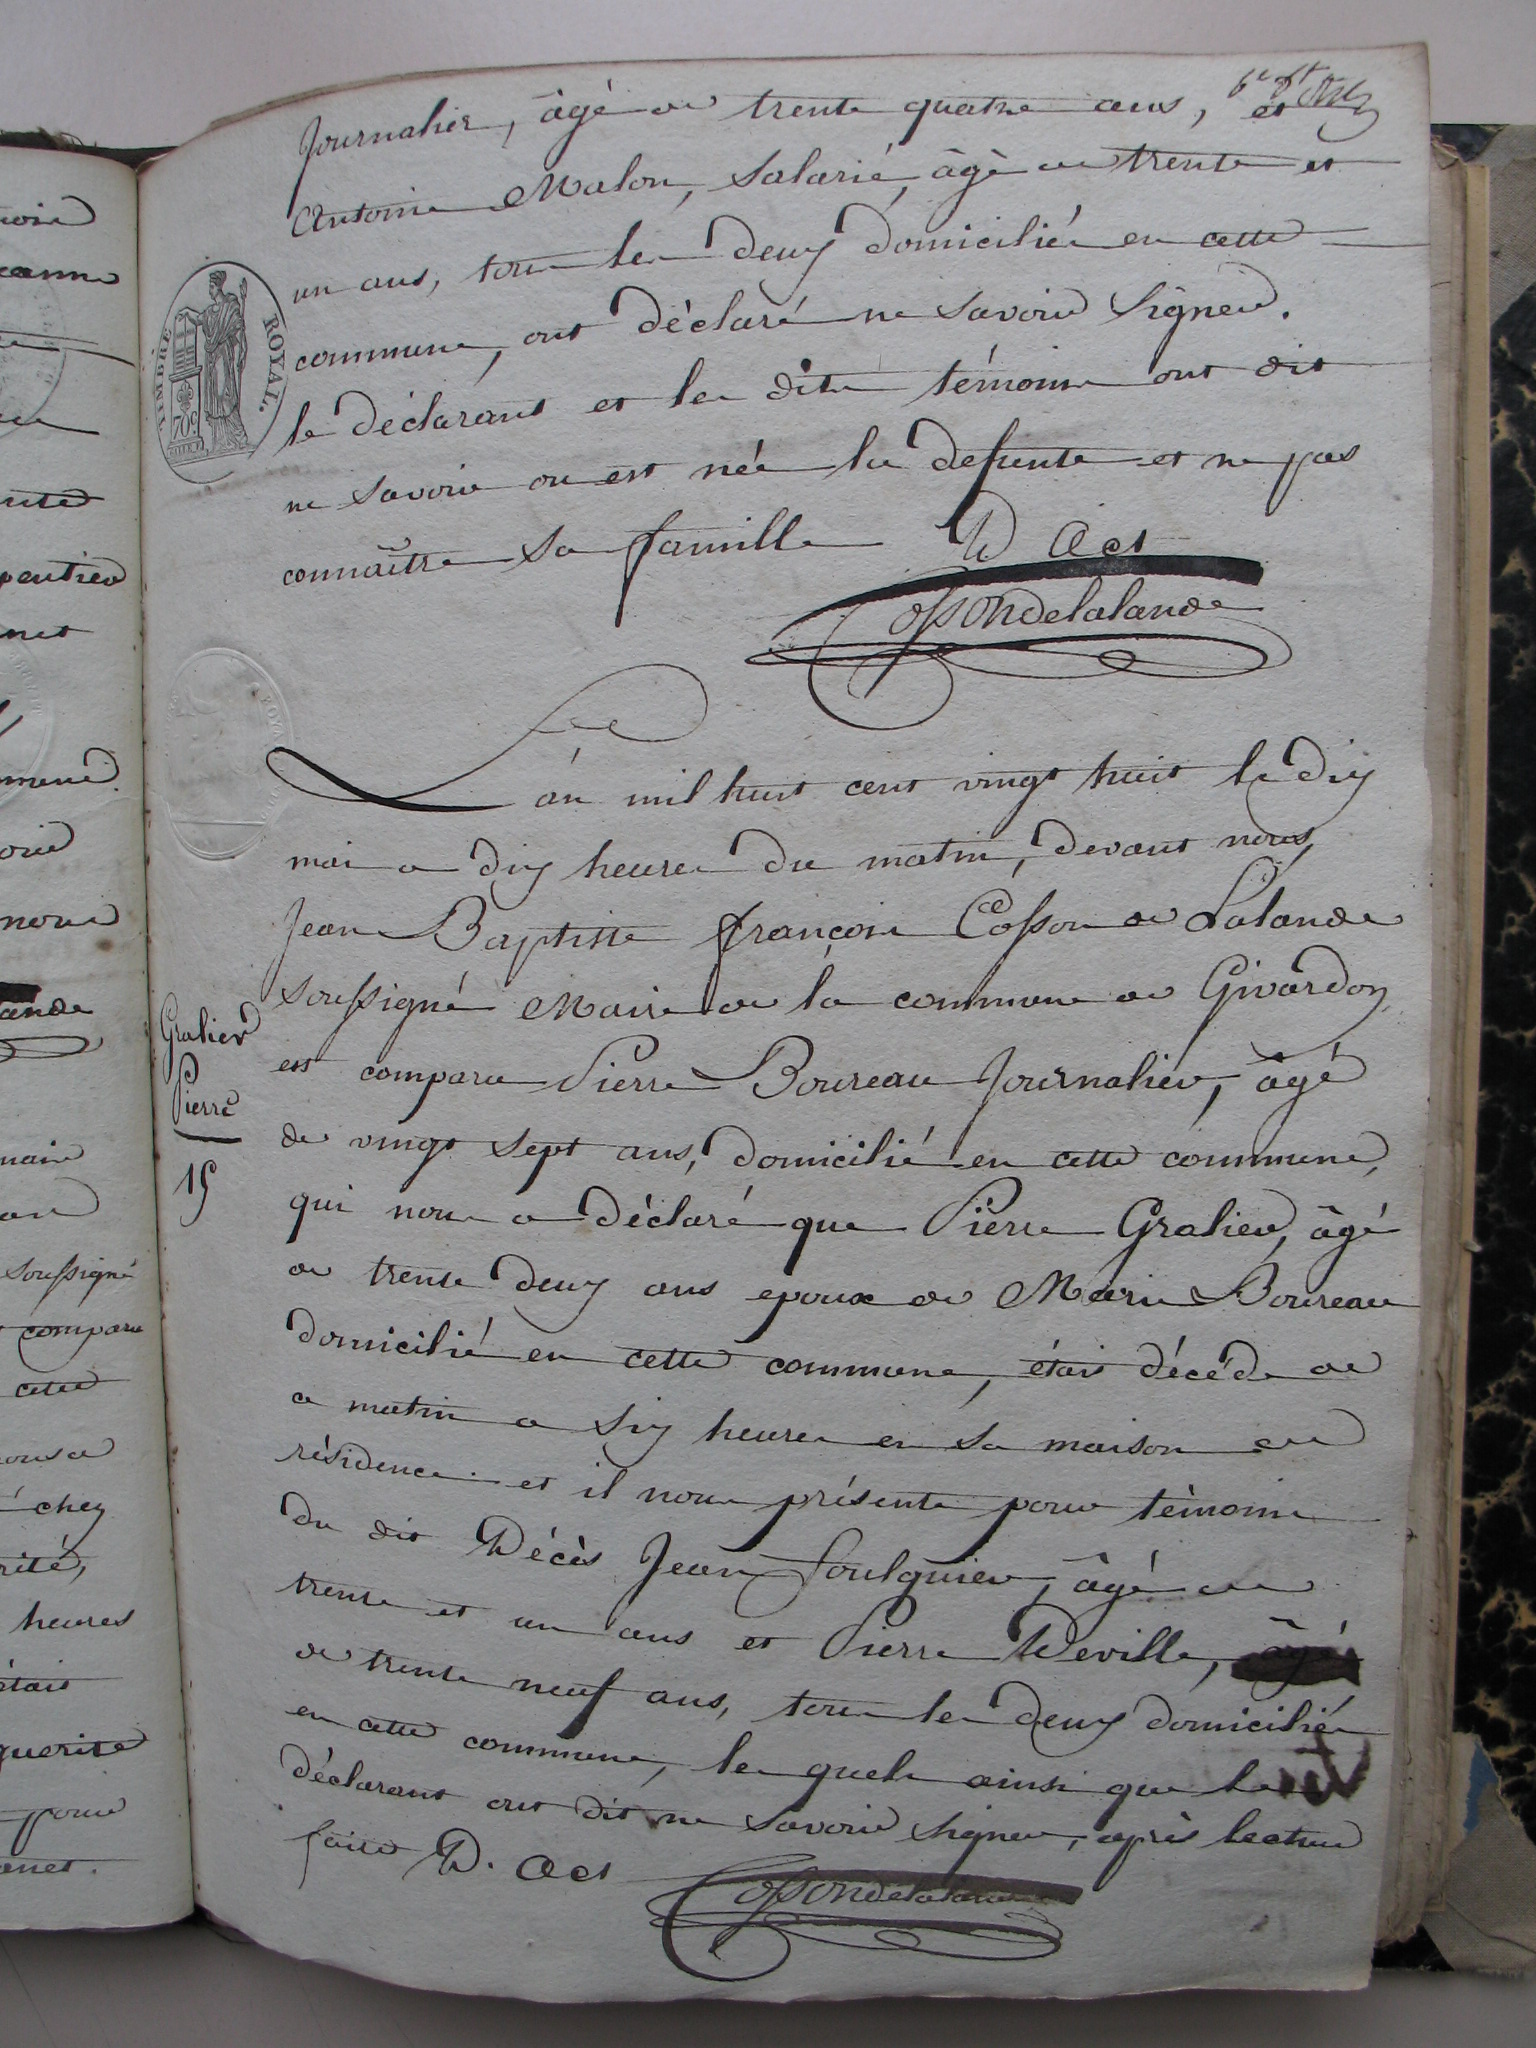 Journalier, âgé de trente quatre ans, et
Antoine Malon, salarié, âgé de trente et
un ans, tous les deux domiciliés en cette
commune, ont déclaré ne savoir signer.
le déclarant et les dits témoins ont dit
ne savoir ou est née la defunte et ne pas
connaître sa famille D. Act
Cossondelalande
TIMBRE ROYAL.
70c
L'an mil huit cent vingt huit le dix
mai a dix heures du matin, devant nous,
Jean Baptiste françois Cosson de Lalande
soussigné Maire de la commune de Givardon
est comparu Pierre Boureau Journalier, âgé
de vingt sept ans, domicilié en cette commune,
qui nous a déclaré que Pierre Gralier, âgé
de trente deux ans epoux de Marie Boureau
domicilié en cette commune, étais décédé de
ce matin a six heures en sa maison de
résidence et il nous présente pour témoins
du dit Décès Jean Foulquier, âgé de
trente et un ans et Pierre Deville, âgé
de trente neuf ans, tous les deux domiciliés
en cette commune, les quels ainsi que le
déclarant ont dit ne savoir signer, après lecture
faite D. Act
Cossondelalande
Gralier
Pierre
15